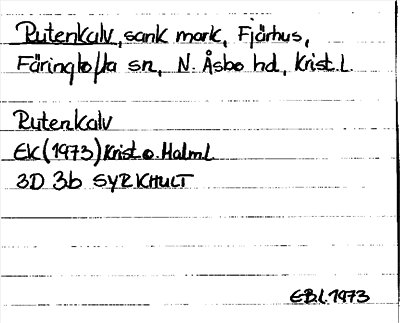 Rutenkalv, sank mark, Fjärhus,
Färingtofta sn, N. Åsbo hd, Krist. L.
Rutenkalv
EK (1973) Krist. o. Malm. L
3D 3b SYRKHULT
EBL 1973